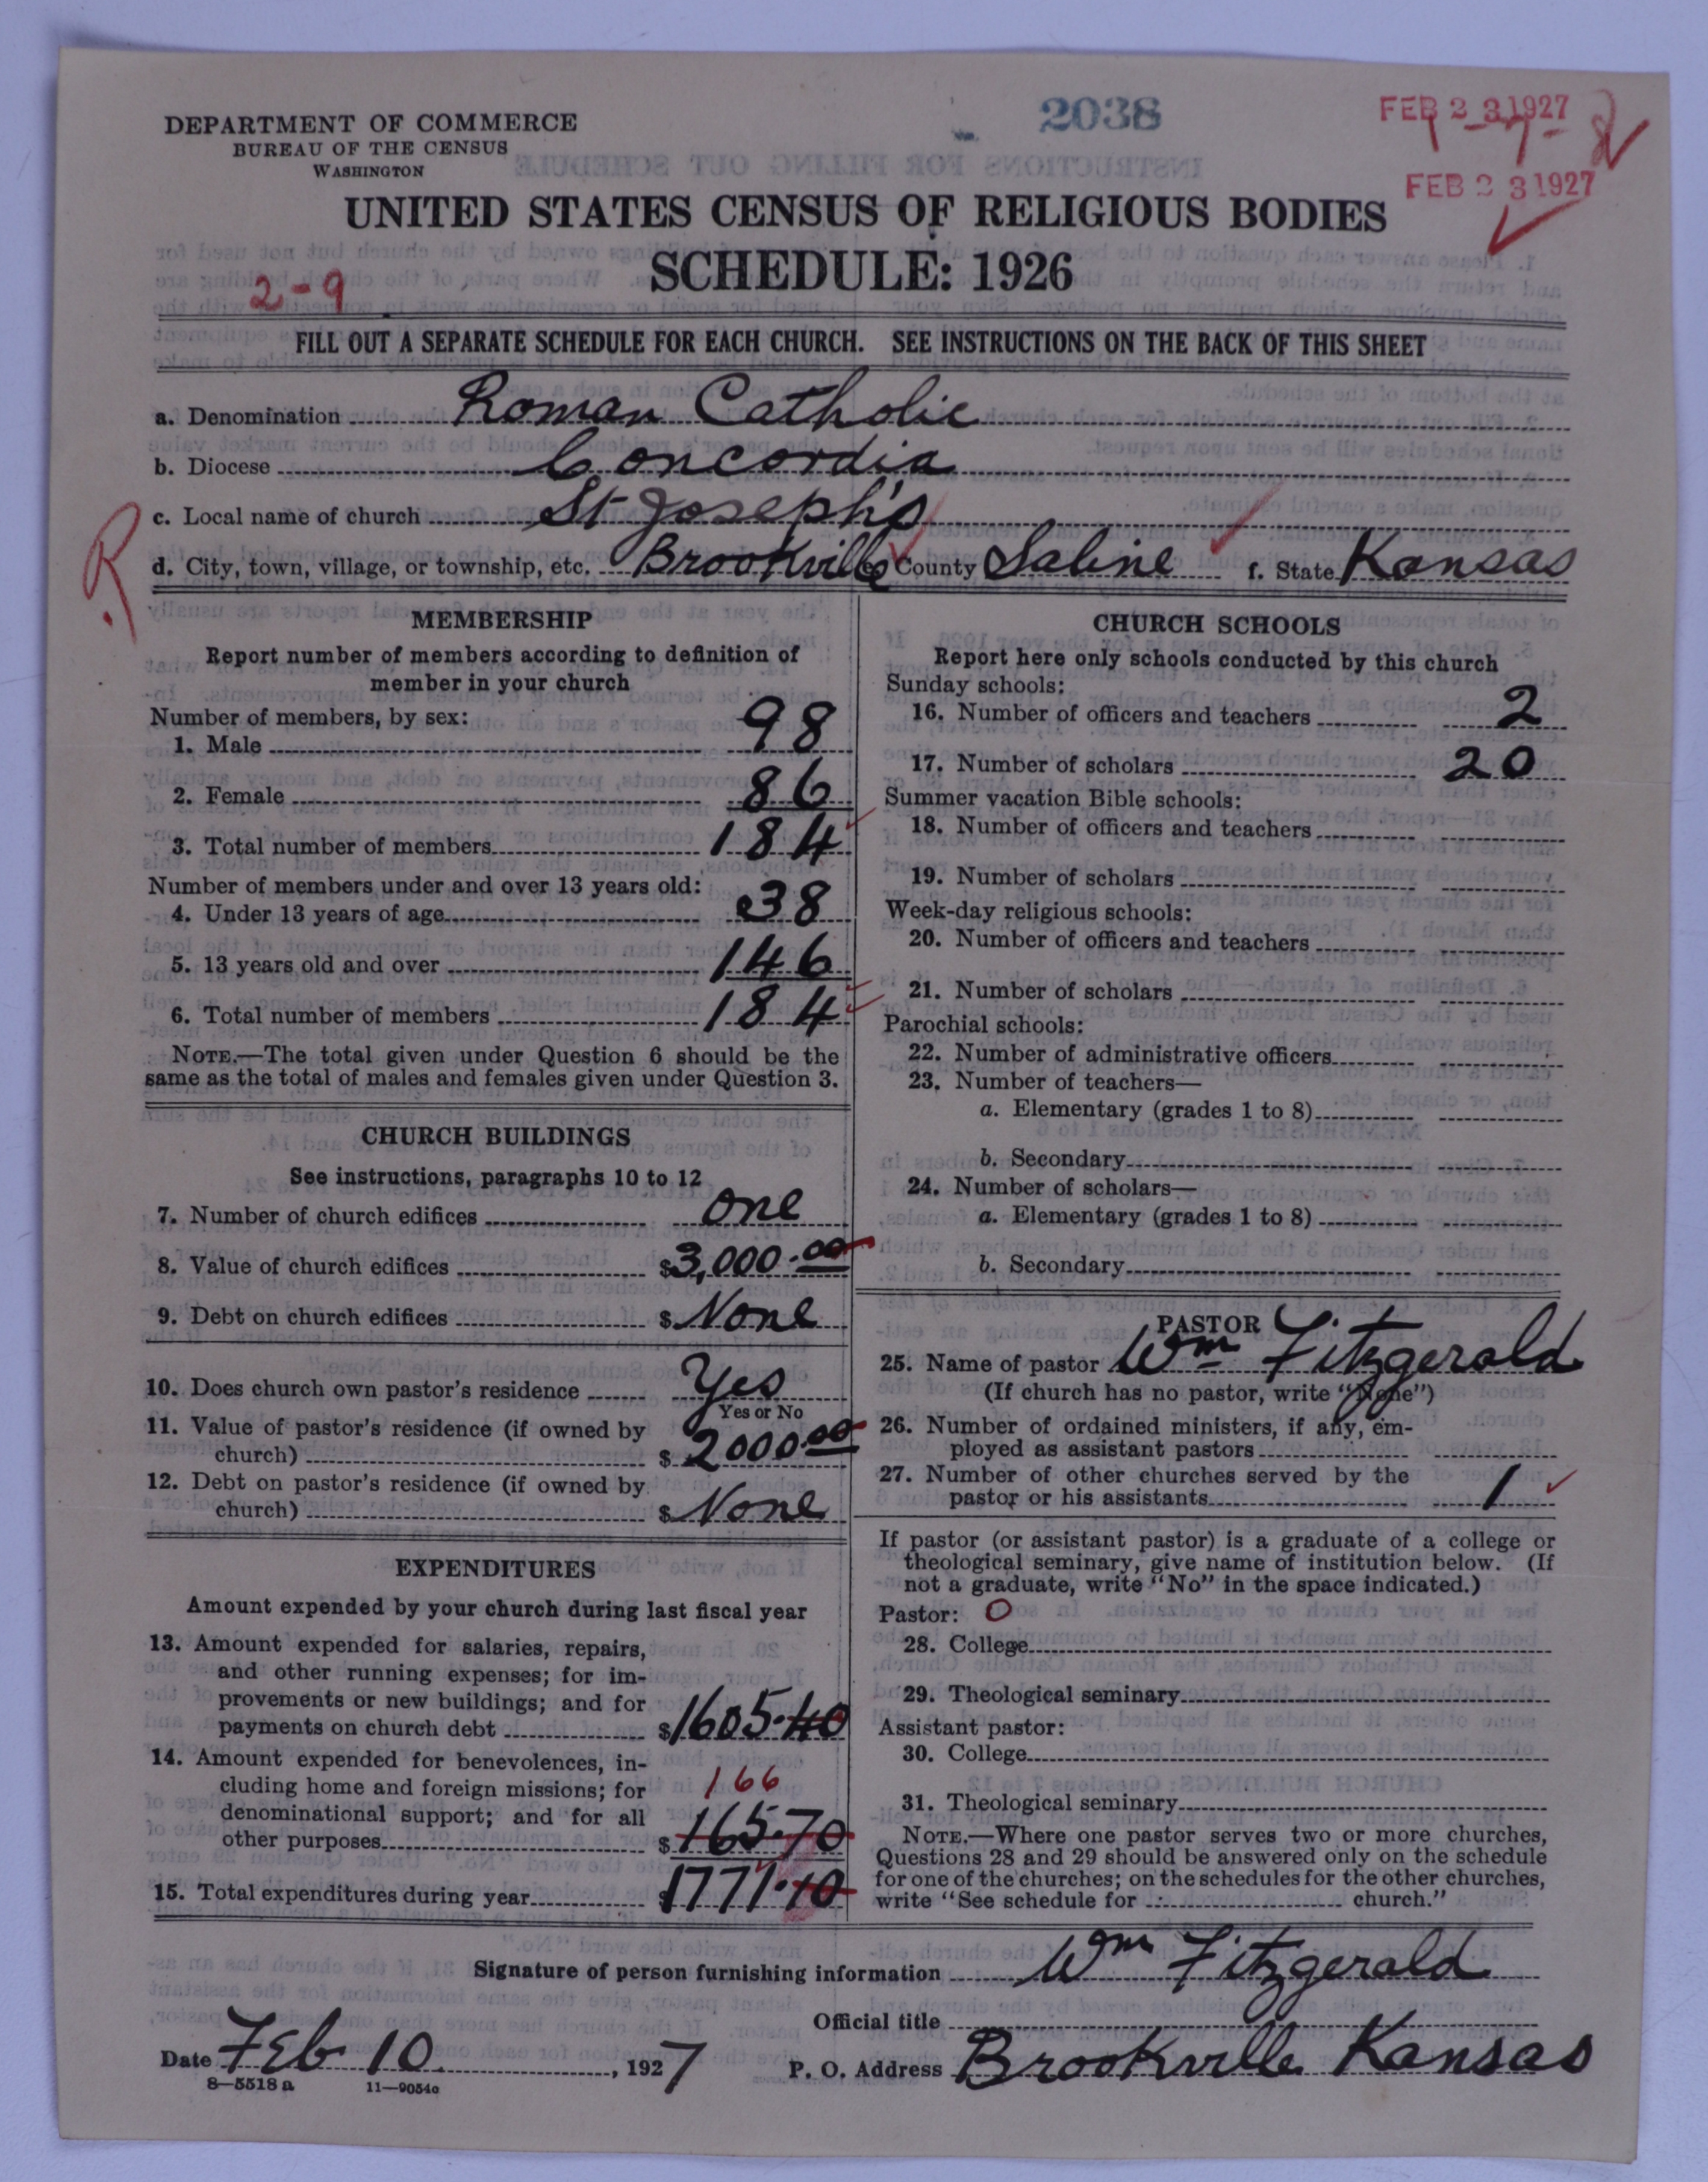 DEPARTMENT OF COMMERCE
BUREAU OF THE CENSUS
WASHINGTON
2038
FEB 23 1927
FEB 23 1927
UNITED STATES CENSUS OF RELIGIOUS BODIES
SCHEDULE: 1926
2-9
FILL OUT A SEPARATE SCHEDULE FOR EACH CHURCH. SEE INSTRUCTIONS ON THE BACK OF THIS SHEET
a. Denomination Roman Catholic
b. Diocese Concordia
c. Local name of church St Joseph's
R
d. City, town, village, or township, etc. Brookville County Saline f. State Kansas
MEMBERSHIP
Report number of members according to definition of
member in your church
Number of members, by sex:
1. Male 98
2. Female 86
3. Total number of members 184
Number of members under and over 13 years old:
4. Under 13 years of age 38
5. 13 years old and over 146
6. Total number of members 184
NOTE.—The total given under Question 6 should be the
same as the total of males and females given under Question 3.
CHURCH BUILDINGS
See instructions, paragraphs 10 to 12
7. Number of church edifices one
8. Value of church edifices $3,000.00
9. Debt on church edifices $ None
10. Does church own pastor's residence Yes
Yes or No
11. Value of pastor's residence (if owned by
church) $ 2000.00
12. Debt on pastor's residence (if owned by
church) $ None
EXPENDITURES
Amount expended by your church during last fiscal year
13. Amount expended for salaries, repairs,
and other running expenses; for im-
provements or new buildings; and for
payments on church debt $1605.40
14. Amount expended for benevolences, in-
cluding home and foreign missions; for 166
denominational support; and for all
other purposes $165.70
15. Total expenditures during year $1771.10
CHURCH SCHOOLS
Report here only schools conducted by this church
Sunday schools:
16. Number of officers and teachers 2
17. Number of scholars 20
Summer vacation Bible schools:
18. Number of officers and teachers
19. Number of scholars
Week-day religious schools:
20. Number of officers and teachers
21. Number of scholars
Parochial schools:
22. Number of administrative officers
23. Number of teachers—
a. Elementary (grades 1 to 8)
b. Secondary
24. Number of scholars—
a. Elementary (grades 1 to 8)
b. Secondary
PASTOR
25. Name of pastor Wm Fitzgerald
(If church has no pastor, write "None")
26. Number of ordained ministers, if any, em-
ployed as assistant pastors
27. Number of other churches served by the
pastor or his assistants 1
If pastor (or assistant pastor) is a graduate of a college or
theological seminary, give name of institution below. (If
not a graduate, write "No" in the space indicated.)
Pastor: O
28. College
29. Theological seminary
Assistant pastor:
30. College
31. Theological seminary
NOTE.—Where one pastor serves two or more churches,
Questions 28 and 29 should be answered only on the schedule
for one of the churches; on the schedules for the other churches,
write "See schedule for church."
Signature of person furnishing information Wm Fitzgerald
Official title
Date Feb 10, 1927 P. O. Address Brookville Kansas
8—5518 a 11—9054a